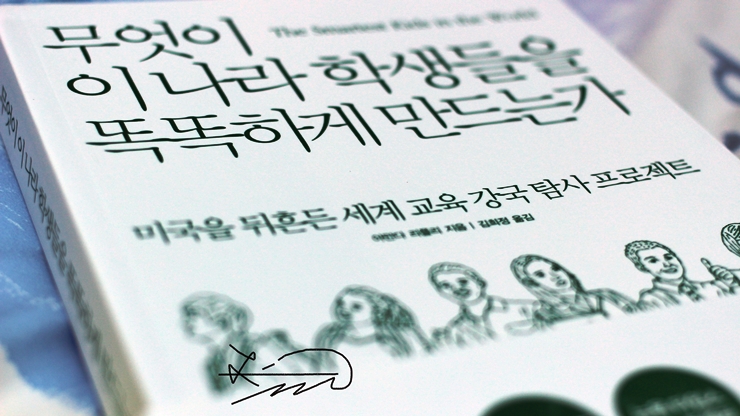 무엇이
The Smartest Kids in the World
이 나라 학생들을
똑똑하게 만드는가
미국을 뒤흔든 세계 교육 강국 탐사 프로젝트
아만다 리플리 지음 | 김희정 옮김
무엇이 이 나라 학생들을 똑똑하게 만드는가